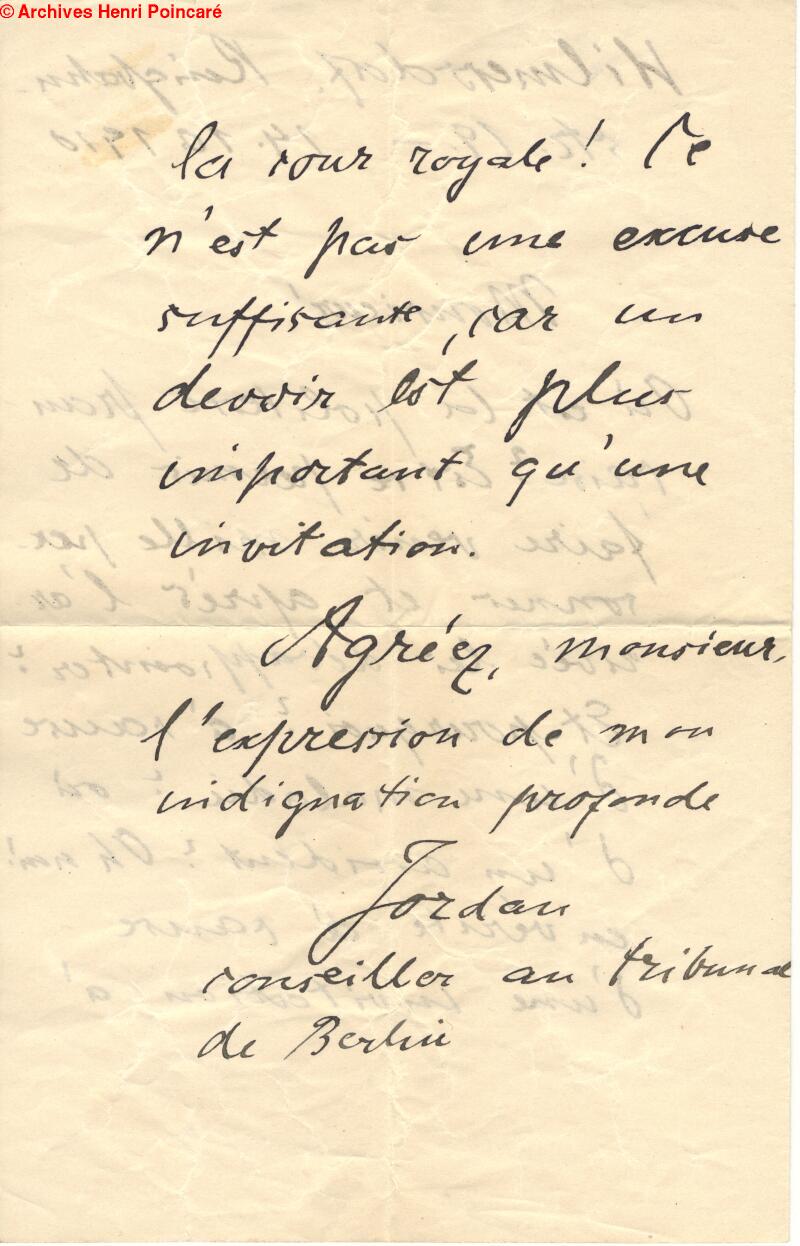 © Archives Henri Poincaré
la cour royale! Ce
n'est pas une excuse
suffisante, car un
devoir est plus
important qu'une
invitation.
Agréez, monsieur,
l'expression de mon
indignation profonde
Jordan
conseiller au tribunal
de Berlin